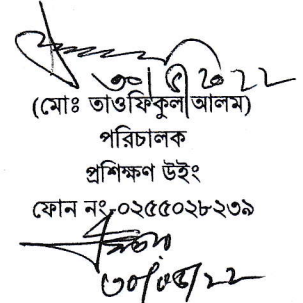 ৩০/৫/২২
(মোঃ তাওফিকুল আলম)
পরিচালক
প্রশিক্ষণ উইং
ফোন নং-০২৫৫০২৮২৩৯
৩০/০৫/২২